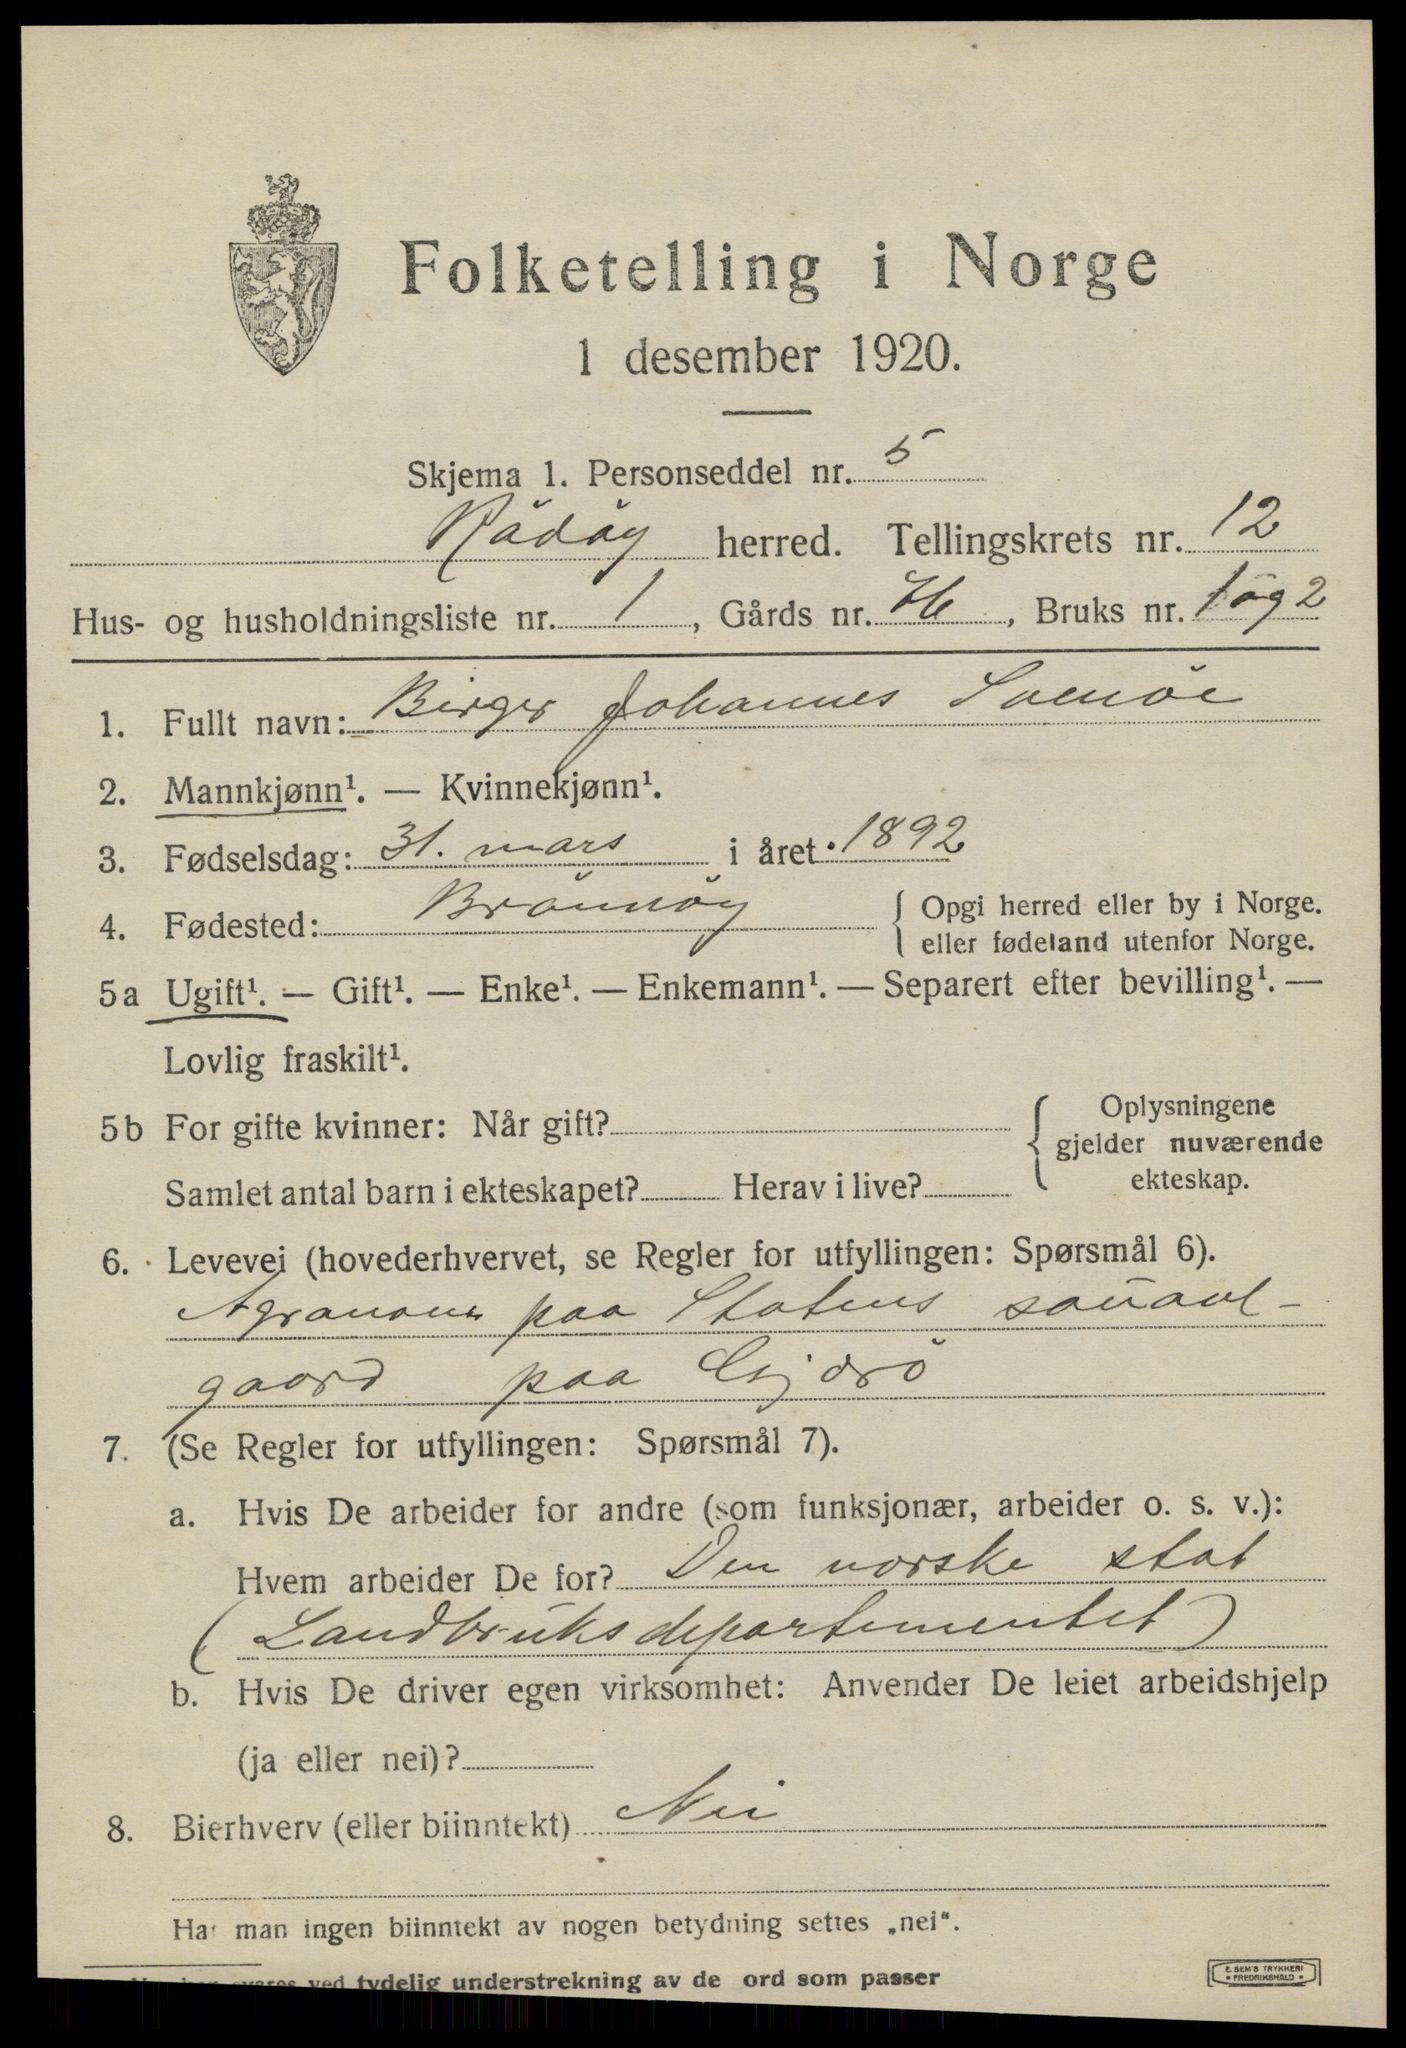 Folketelling i Norge
1 desember 1920.
Skjema 1. Personseddel nr. 5
Rödöy herred. Tellingskrets nr. 12
Hus- og husholdningsliste nr. 1, Gårds nr. Bruks nr. 1 og 2
1. Fullt navn: Birger Johannes
2. Mannkjønn¹. — Kvinnekjønn¹.
3. Fødselsdag: 31. mars i året 1892
4. Fødested: Brönnöy { Opgi herred eller by i Norge.
eller fødeland utenfor Norge.
5a Ugift¹. — Gift¹. — Enke¹. — Enkemann¹. — Separert efter bevilling¹. —
Lovlig fraskilt¹.
5b For gifte kvinner: Når gift? { Oplysningene
gjelder nuværende
Samlet antal barn i ekteskapet? Herav i live? ekteskap.
6. Levevei (hovederhvervet, se Regler for utfyllingen: Spørsmål 6).
Agronom paa Statens sauavl-
gaard paa Gjerö
7. (Se Regler for utfyllingen: Spørsmål 7).
a. Hvis De arbeider for andre (som funksjonær, arbeider o. s. v.):
Hvem arbeider De for? Den norske stat
(Landbruksdepartementet)
b. Hvis De driver egen virksomhet: Anvender De leiet arbeidshjelp
(ja eller nei)?
8. Bierhverv (eller biinntekt) Nei
Har man ingen biinntekt av nogen betydning settes „nei“.
svares ved tydelig understrekning av de ord som passer
E. SEM'S TRYKKERI
FREDRIKSHALD